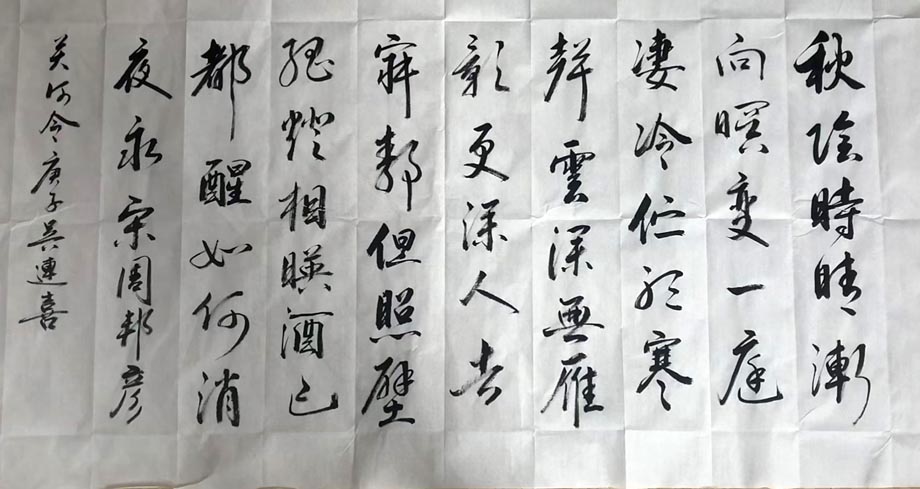 秋陰時晴漸
向暝變一庭
凄冷伫聽寒
聲雲深無雁
影更深人去
寂靜但照壁
孤燈相暎酒已
都醒如何消
夜永宋周邦彥
关河令庚子吴連喜